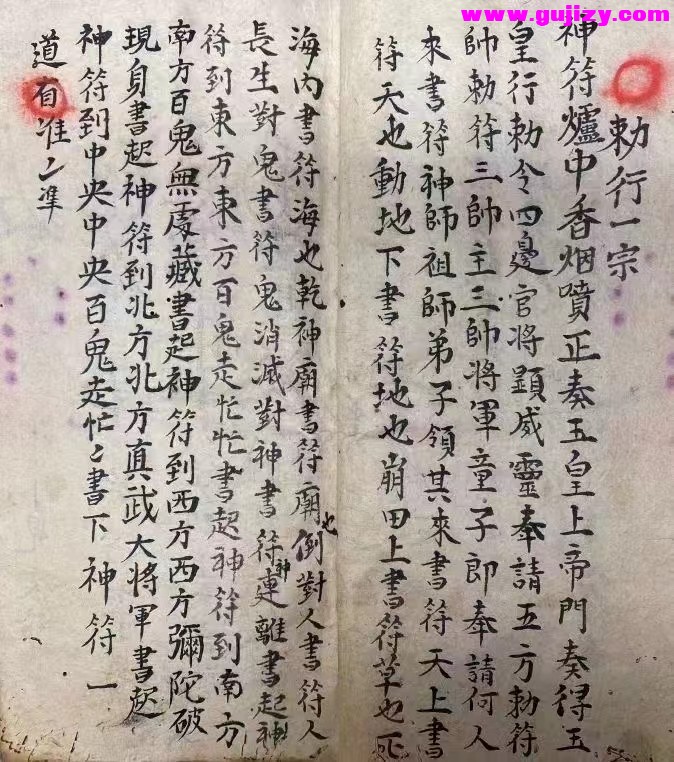 www.gujizy.com
勅行一宗
神符爐中香烟噴正奏玉皇上帝門奏得玉
皇行勅令四邊官将顕威靈奉請五方勅符
帥勅符三帥主三帥將軍童子即奉請何人
來書符神師祖師弟子領其來書符天上書
符天也動地下書符地也崩田上書符草也死
海内書符海也乾神廟書符廟也倒對人書符人
長生對鬼書符鬼消滅對神書符神連離書起神
符到東方東方百鬼走忙忙書起神符到南方
南方百鬼無處藏書起神符到西方西方彌陀破
現身書起神符到北方北方真武大將軍書起
神符到中央中央百鬼走忙〻書下神符一
道有准〻準